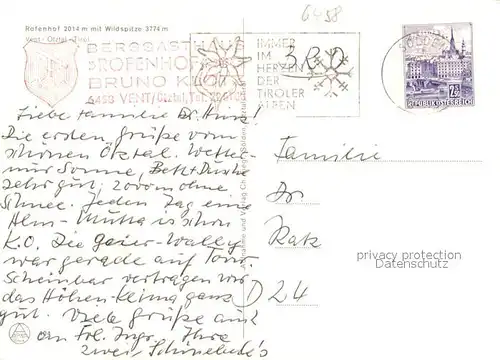 6458
Rofenhof 2014 m mit Wildspitze 3774 m
Vent - Ötztal - Tirol
BERGGASTHAUS
»ROFENHOF«
BRUNO KLOTZ
6458 VENT/Ötztal, Tel.
IMMER
IM
HERZEN
DER
TIROLER
ALPEN
BRD
SÖLDEN
2.50
REPUBLIK ÖSTERREICH
Liebe Familie Dr.
Die ersten Grüße vom
schönen Ötztal. Wetter
nur Sonne, Bett + Dusche
sehr gut, 2000 m ohne
Schnee. Jeden Tag eine
Alm - Mutta ist schon
K.O. Die Geier-Wally
war gerade auf Tour
Scheinbar vertragen wir
das Höhen-Klima ganz
gut. Viele Grüße auch
an Frl. Ingr. Ihre
zwei
Aufnahme und Verlag Ch. Sölden, Ötztal
Familie
Dr.
Katz
D 24
privacy protection
Datenschutz